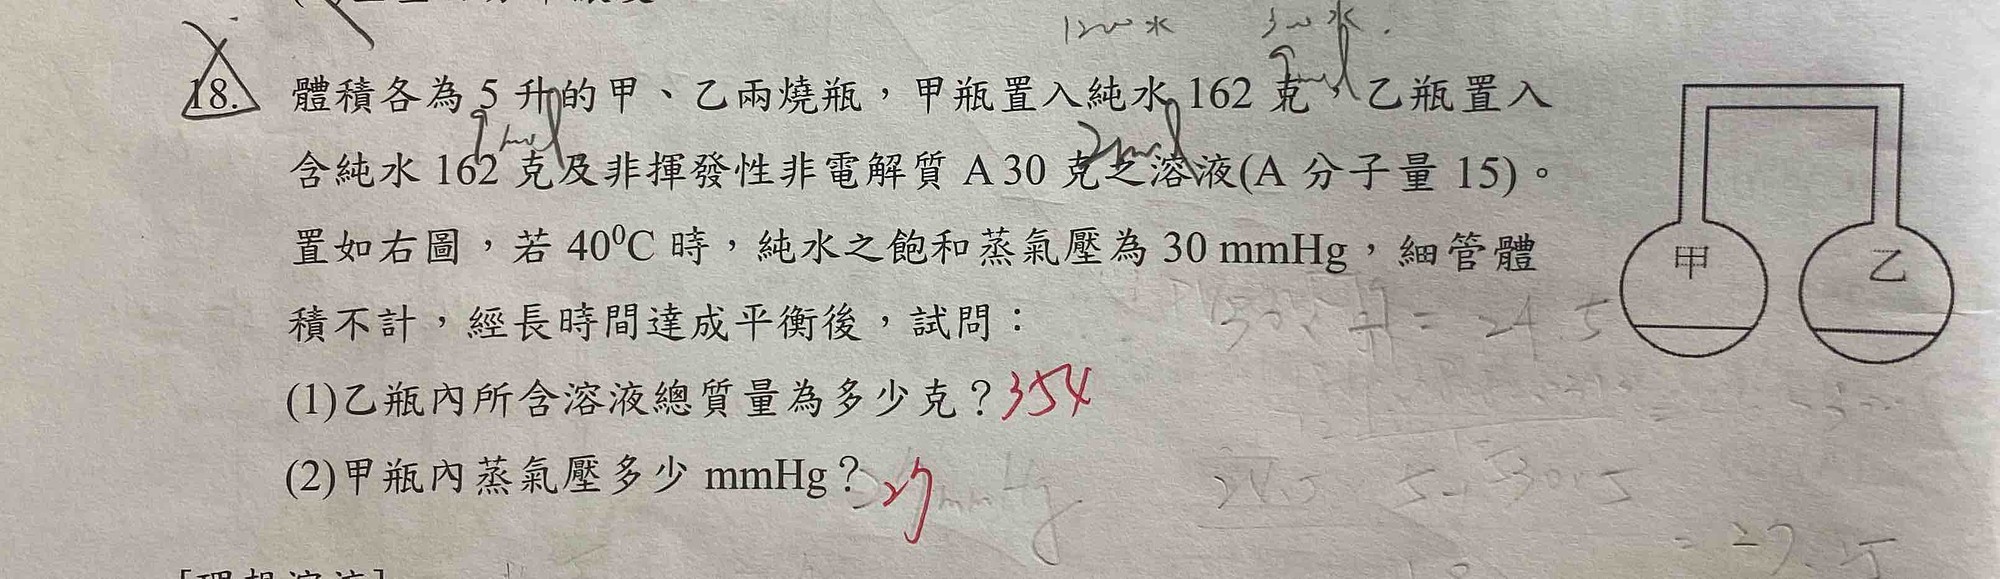 1200水 300水.
18. 體積各為 5 升的甲、乙兩燒瓶，甲瓶置入純水 162 克，乙瓶置入
9mol
9mol 2mol
含純水 162 克及非揮發性非電解質 A 30 克之溶液(A 分子量 15)。
置如右圖，若 40⁰C 時，純水之飽和蒸氣壓為 30 mmHg，細管體
積不計，經長時間達成平衡後，試問：
(1)乙瓶內所含溶液總質量為多少克？354
(2)甲瓶內蒸氣壓多少 mmHg？27
甲 乙
= 24.5
24.5